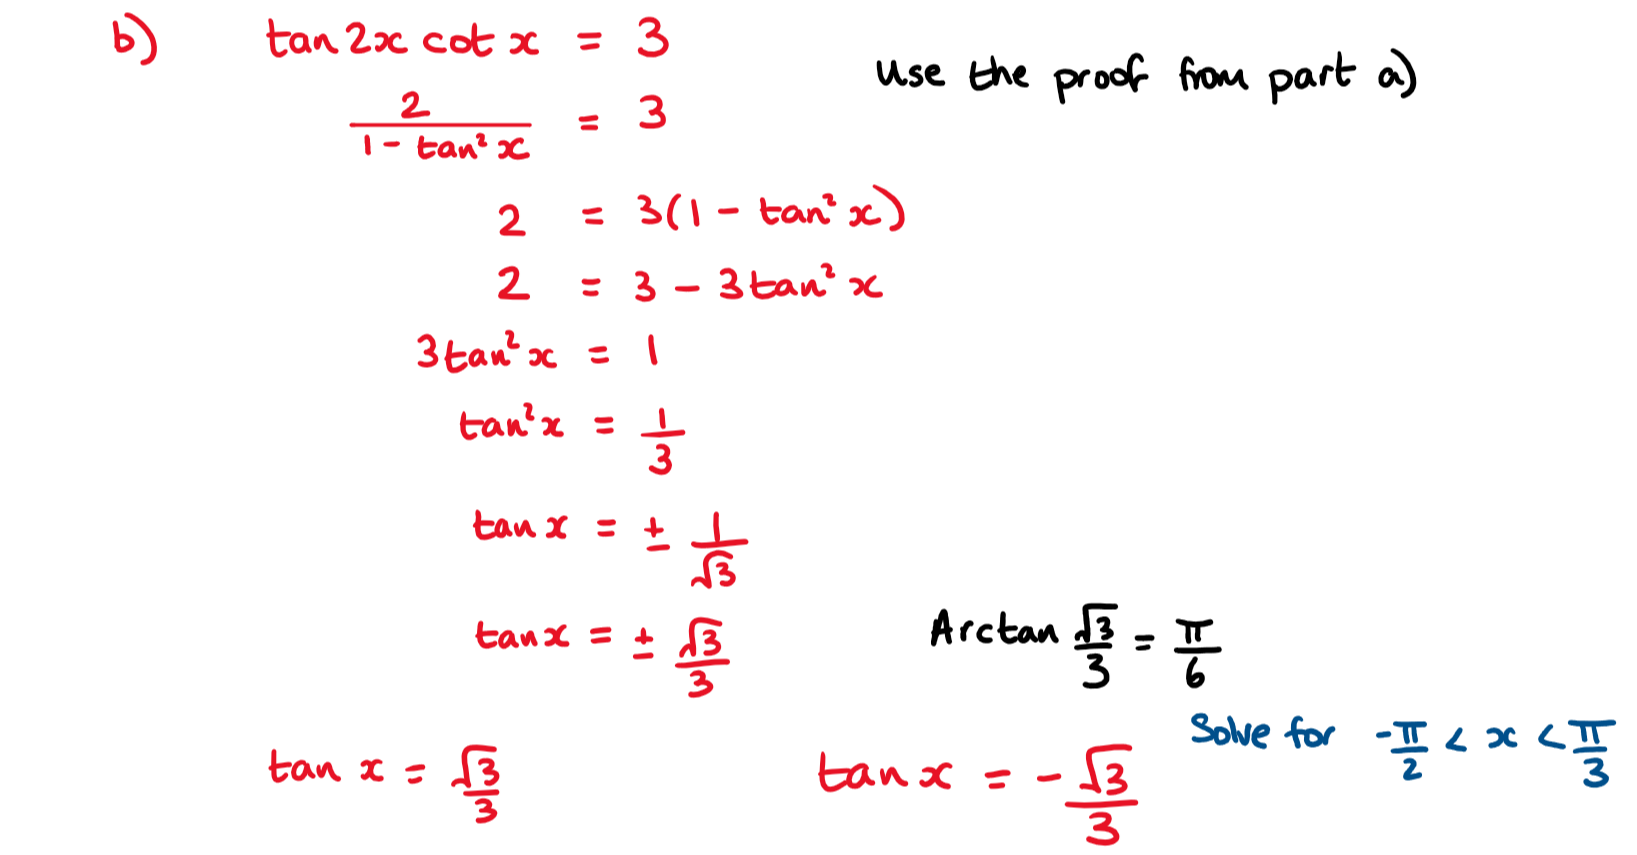 b) tan 2x cot x = 3
Use the proof from part a)
2/(1 - tan² x) = 3
2 = 3(1 - tan² x)
2 = 3 - 3tan² x
3tan² x = 1
tan² x = 1/3
tan x = ± 1/√3
tan x = ± √3/3
Arctan √3/3 = π/6
Solve for -π/2 < x < π/3
tan x = √3/3
tan x = - √3/3